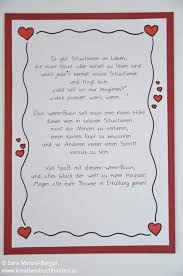 Es gibt Situationen im Leben,
die nicht leicht oder sofort zu lösen sind
wohl jede/r kennt solche Situationen
und fragt sich
"wie soll ich nur reagieren?"
"was passiert wohl, wenn...
Das wenn-Buch soll euch eine kleine Hilfe
dabei sein in solchen Situationen
nicht die Nerven zu verlieren,
einen kühlen Kopf zu bewahren
und so Anderen immer einen Schritt
voraus zu sein.
Viel Spaß mit diesem wenn-Buch,
und alles Glück der Welt zu eurer Hochzeit
Mögen alle eure Träume in Erfüllung gehen!
© Sara Menzel-Berger,
www.kreativesbuchbinden.at